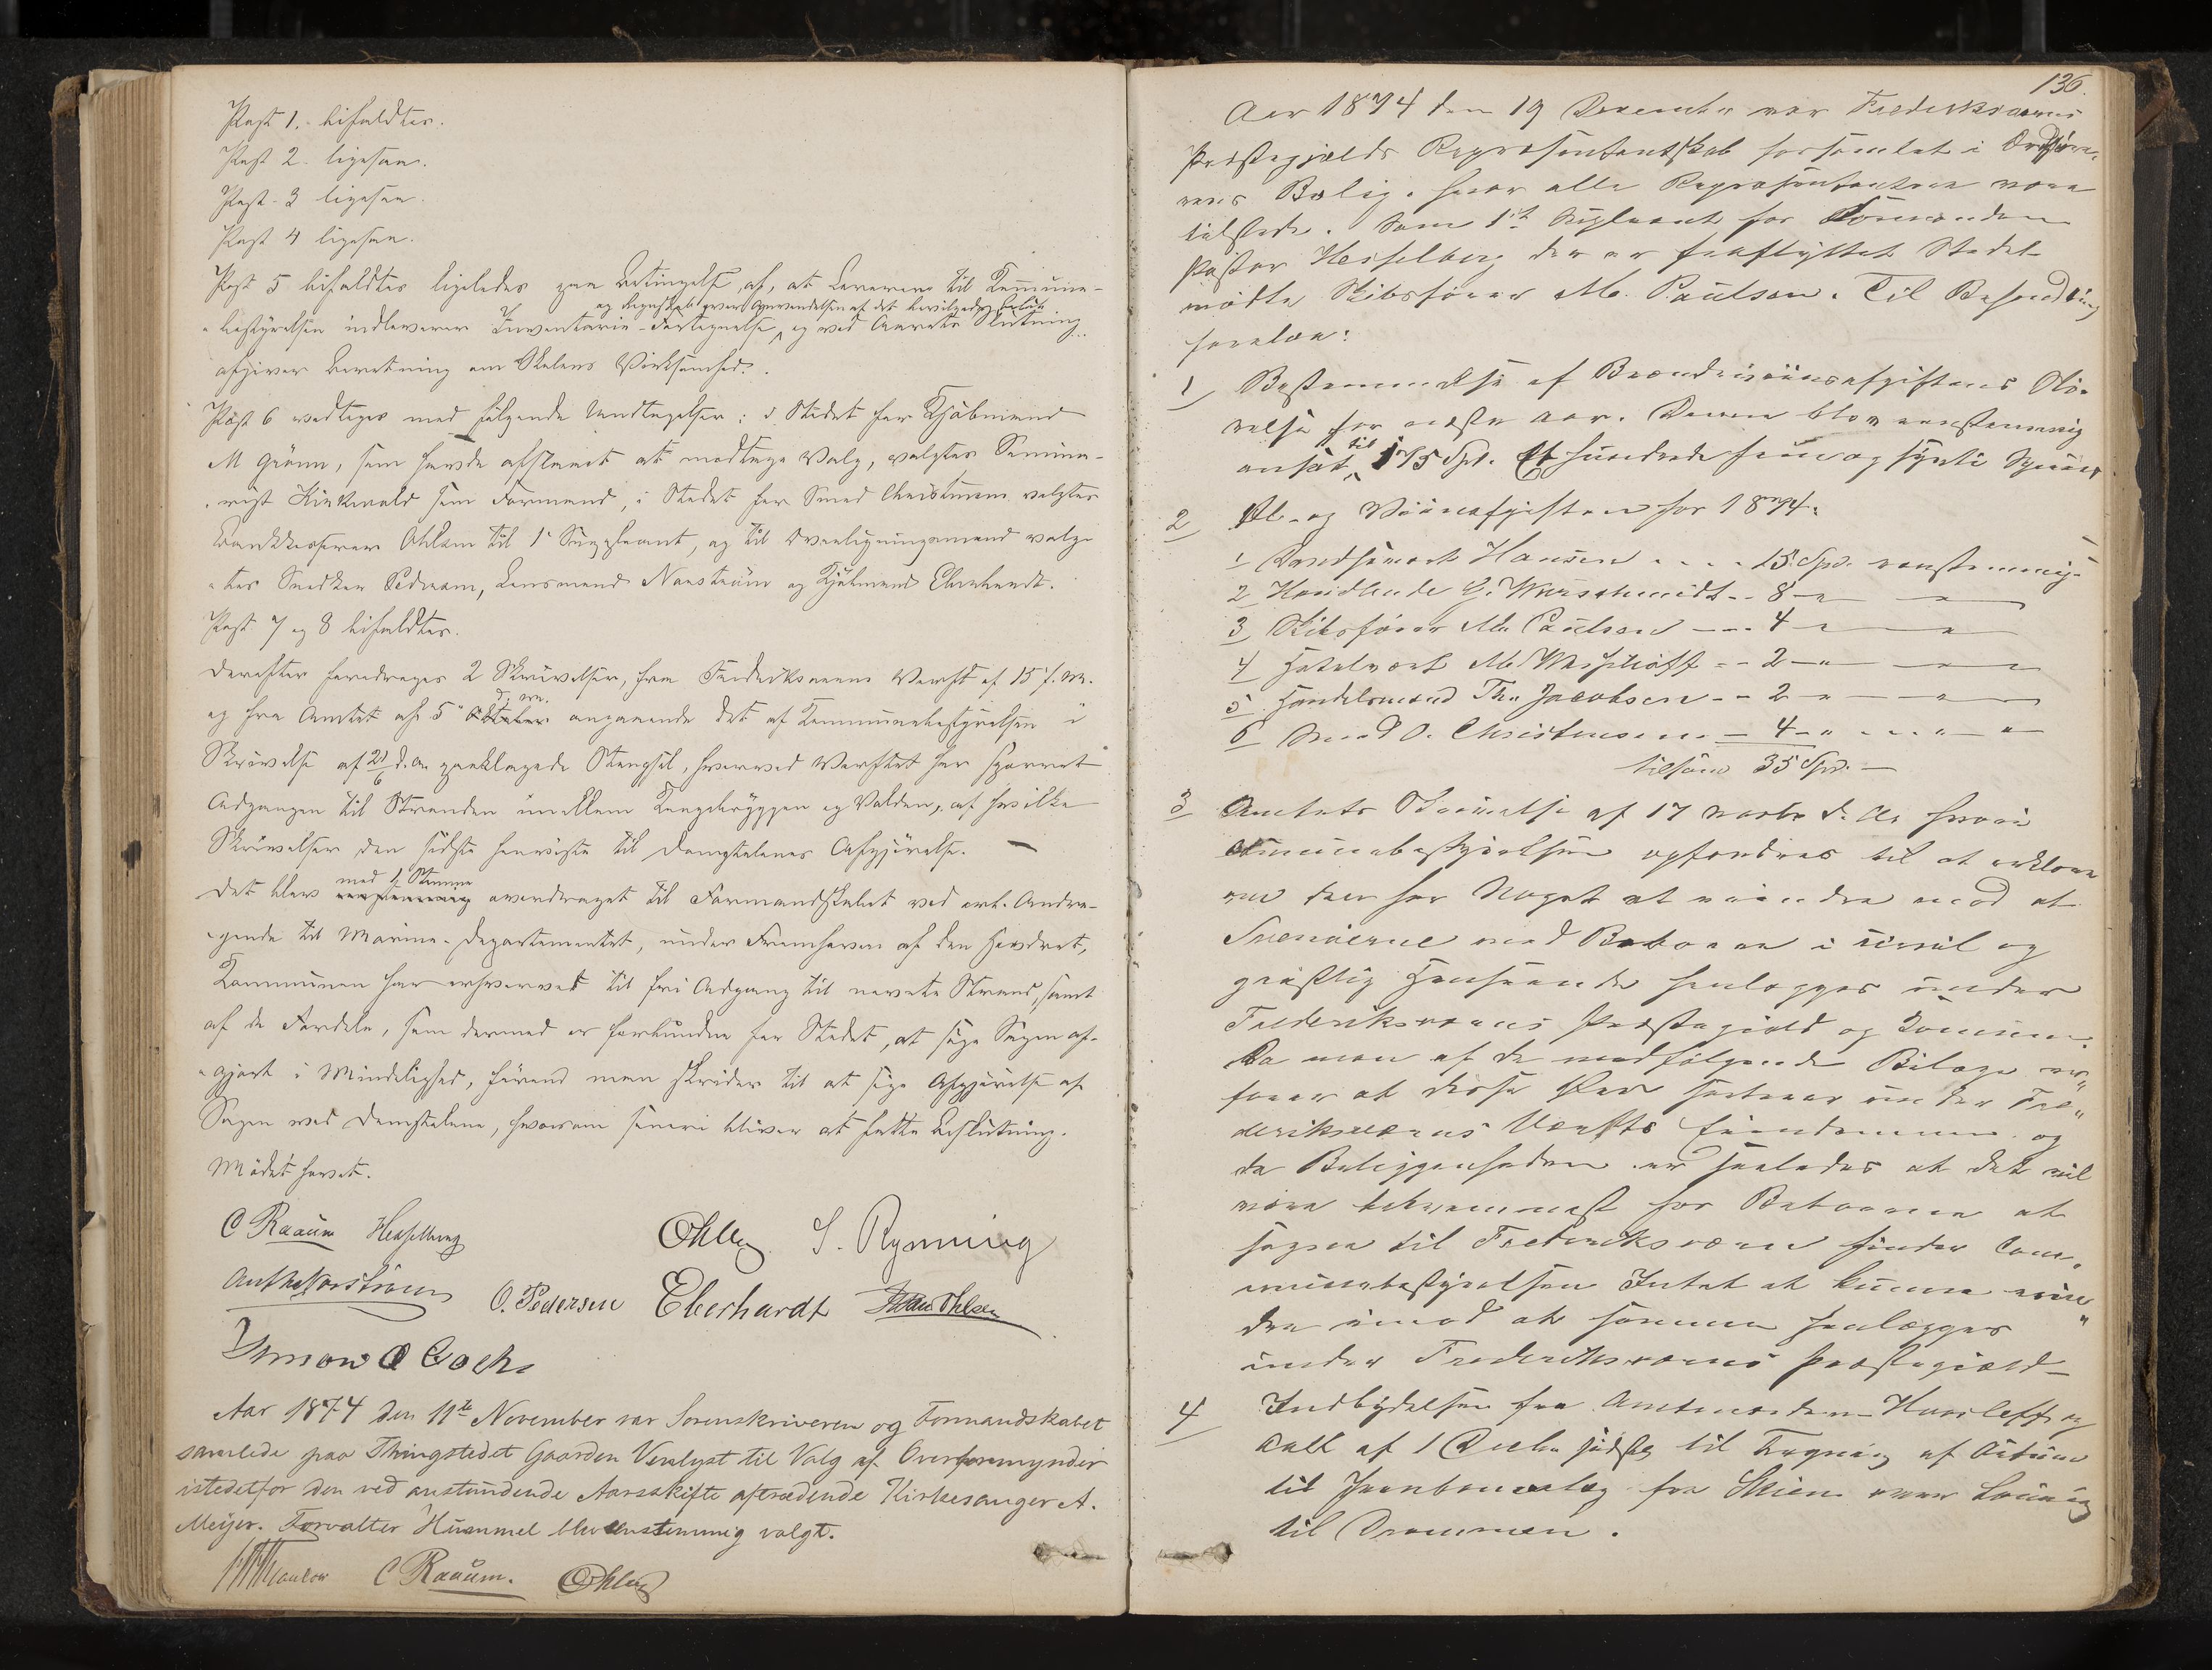 Post 1. bifaldtes.
Post 2. ligesaa.
Post. 3 ligesaa.
Post 4 ligesaa.
Post 5 bifaldtes ligeledes paa Betingelse af, at Læreren til Kommune-
og Regnskab over Anvendelsen af det bevilgede Beløb
bestyrelsen indleverer Inventarie-Fortegnelse, og ved Aarets Slutning
afgiver Beretning om Skolens Virksomhed.
Post 6 vedtoges med følgende Undtagelser: i Stedet for Kjøbmand
M Grønn, som havde afslaaet at modtage Valg, valgtes Semina-
rist Kirkvold som Formand, i Stedet for Smed Christensen valgtes
Bankkasserer Ohlsen til 1 Suppleant, og til Overligningsmænd valg-
tes Snedker Pedersen, Lensmand Norström og Kjøbmand Eberhardt.
Post 7 og 8 bifaldtes.
Derefter foredroges 2 Skrivelser, fra Frederiksværns Værft af 15 f. M.
d. M.
og fra Amtet af 5 Oktober angaaende det af Kommunebestyrelsen i
Skrivelse af 21/6 d. A. paaklagede Stængsel, hvorved Værftet har spærret
Adgangen til Stranden imellem Tangebryggen og Volden, af hvilke
Skrivelser den sidste henviste til Domstolenes Afgjørelse. —
med 1 Stemme
Det blev eenstemmig overdraget til Formandskabet ved et Andra-
gende til Marine-Departementet, under Fremhæven af den Hævdret,
Kommunen har erhvervet til fri Adgang til nævnte Strand, samt
af de Fordele, som dermed er forbundne for Stedet, at søge Sagen af-
gjort i Mindelighed, førend man skrider til at søge Afgjørelse af
Sagen ved Domstolene, hvorom senere bliver at fatte Beslutning.
Mødet hævet.
C Raaum Hesselberg Ohlsen S. Rynning
Norström O. Pedersen Eberhardt Ohlsen
Simon
Aar 1874 den 11te November var Sorenskriveren og Formandskabet
samlede paa Thingstedet Gaarden Vennlyst til Valg af Overformynder
istedetfor den ved anstundende Aarsskifte aftrædende Kirkesanger A.
Meijer. Forvalter Hummel blev eenstemmig valgt.
C Raaum. Ohlsen
136.
Aar 1874 den 19 December var Frederiksværns
Præstegjælds Repræsentantskab forsamlet i Ordføre-
rens Bolig, hvor alle Repræsentanter vare
tilstede. Som 1st Supleant for Formanden
Pastor Hesselberg der er fraflyttet Stedet
mødte Skibsfører M. Paulsen. Til Behandling
forelaa:
1 Bestemmelse af Brændeviinsafgiftens Stør-
relse for næste Aar. Denne blev eenstemmig
ansat til 175 Spd. Et hundrede fem og sytti Species
2 Øl- og Viinafgiften for 1874.
1 Landhandler Hansen . . . . 15 Spd. eenstemmig.
2 Handlende G. Wurschmidt - - 8 - " - "
3 Skibsfører M. Paulsen - - - 4 - " - "
4 Hotelvært M. Wasshoff - - 2 - " - "
5 Handelsmand Th. Jacobsen - - 2 - " - "
6 Smed O. Christensen - 4 - " - "
tilsam 35 Spd. —
3 Amtets Skrivelse af 17 Novbr d. A. hvori
Communebestyrelsen opfordres til at erklære
om den har Noget at erindre mod at
Svenørerne med Beboere i civil og
geistlig Henseende henlægges under
Frederiksværns Præstegjæld og Commune.
Da man af de medfølgende Bilage er-
farer at disse Øer sorterer under Fre-
deriksværns Værfts Eiendomme og
da Beliggenheden er saaledes at det vil
være bekvemmest for Beboerne at
søgne til Frederiksværn finder Com-
munebestyrelsen Intet at kunne erin-
dre imod at samme henlægges
under Frederiksværns Præstegjæld
4 Indbydelse fra Amtmændene Haxloff og
Aall af 1 Decbr sidstl. til Tegning af Actier
til Jernbaneanlæg fra Skien over Laurvig
til Drammen.